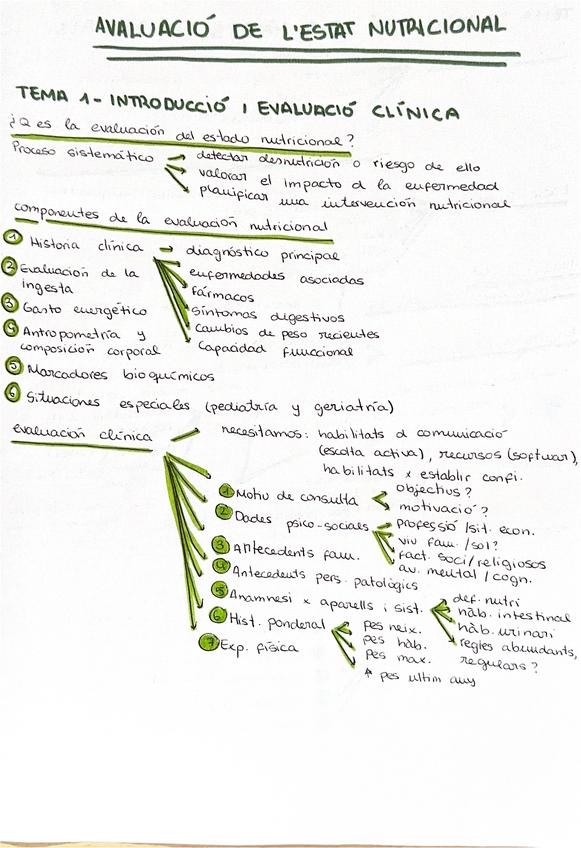 AVALUACIÓ DE L'ESTAT NUTRICIONAL
TEMA 1- INTRODUCCIÓ I EVALUACIÓ CLÍNICA
¿Q es la evaluación del estado nutricional?
Proceso sistemático
detectar desnutrición o riesgo de ello
valorar el impacto d la enfermedad
planificar una intervención nutricional
componentes de la evaluación nutricional
1 Historia clínica → diagnóstico principal
enfermedades asociadas
fármacos
síntomas digestivos
cambios de peso recientes
capacidad funccional
2 Evaluación de la
ingesta
3 Gasto energético
4 Antropometría y
composición corporal
5 Marcadores bioquímicos
6 Situaciones especiales (pediatría y geriatría)
evaluación clínica
necesitamos: habilitats d comunicació
(escolta activa), recursos (softwar),
habilitats x establir confi.
1 Motiu de consulta
objectius?
motivació?
2 Dades psico-socials
Professió /sit. econ.
viu fam. /sol?
fact. soci/religiosos
av. mental / cogn.
3 Antecedents fam.
4 Antecedents pers. patològics
5 Anamnesi x aparells i sist.
def. nutri
hàb. intestinal
hàb. urinari
regles abundants,
regulars?
6 Hist. ponderal
pes neix.
pes hàb.
pes max.
↑ pes ultim any
7 Exp. física